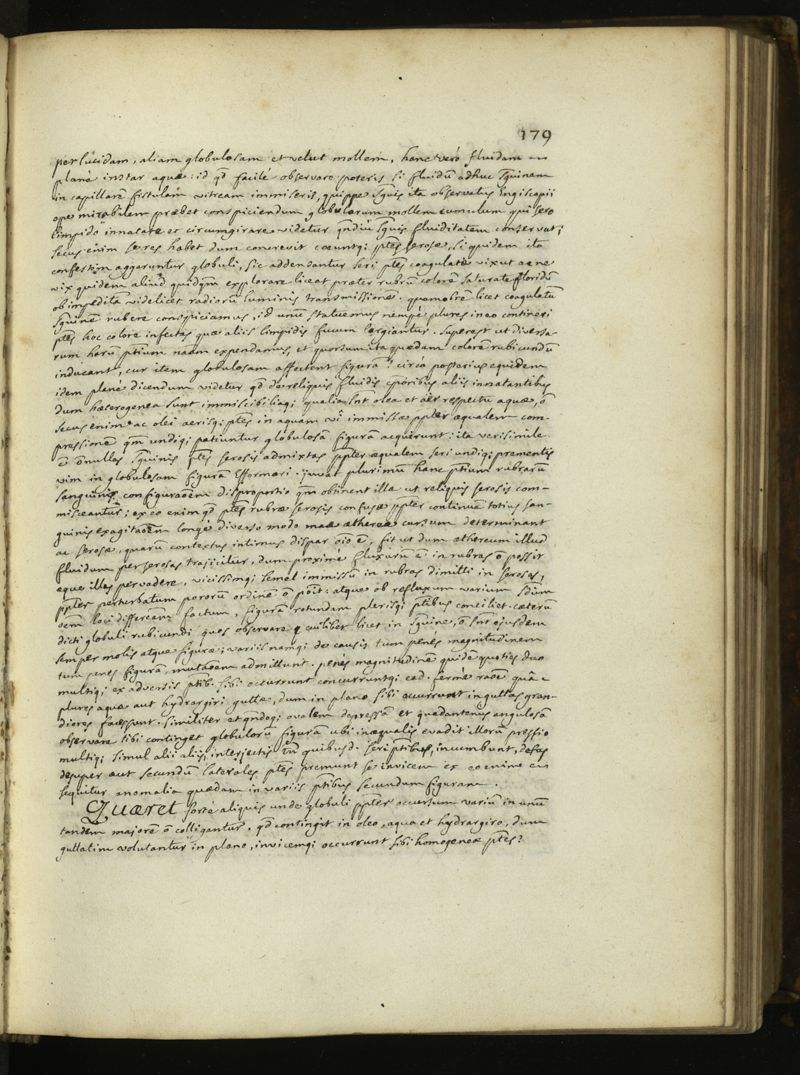 179
perlucidam, aliam globulosam et velut mollem, hanc verò fluidam
planè instar aquæ: id qd facilè observare poteris si fluidū adhuc sguinem
in capillarē fistulam vitream immiseris, quippe sguis ita observatus Engiscopii
ope mirabilem præbet conspiciendum globulorum mollem qui sero
limpido innatare et circumgirare videtur qndiu sguis fluiditatem conservat;
secus enim se res habet dum concrevit coeuntqi ptes serosæ, siquidem ita
confestim aggeruntur globuli, sic addensantur seri ptes coagulatæ vix ut
vix quidem aliud quidqm explorare liceat præter rubrū colorē saturatè floridū
ob impedita videlicet radiorū luminis transmissione. quamobrē licet coagulatū
sguinē rubere conspiciamus, id unū statuemus nempè plures in eo contineri
ptes hoc colore infectas quæ aliis limpidis fucum largiantur. superest ut diversa-
rum harū ptium naam expendamus, et quorsum ita quædam colorē rubicundū
inducant, cur item globulosam affectent figurā? circà posterius equidem
idem planè dicendum videtur qd de reliquis fluidis cporibus aliis innatantibus
dum heterogenea sunt immiscibiliaqi qualia snt olea et aer respectu aquæ, ō
secus enim ac olei aerisqi ptes in aquam vi immissæ ppter æqualem com-
pressionē qm undiqi patiuntur globulosā figurā acquirunt: ita verisimile
ē ōnullas sguinis ptes serosis admixtas ppter æqualem seri undiqi prementis
vim in globulosam figurā efformari. juvat plurimū hanc ptium rubrarū
sanguinis configuraōem disproportio qm obtinent illa ut reliquis serosis com-
misceantur; ex eo enim qd ptes rubræ serosis confusæ ppter continuē totius san-
guinis exagitaōem longè diverso modo mae æthereæ cursum determinant
ac serosæ, quarū contextus intimus dispar oiō ē, fit ut dum æthereum illud
fluidum per serosas trajicitur, dum proximè fluxurū ē in rubras ō possit
æque illas pervadere, vicissimqi semel immissū in rubras dimitti in serosas,
ppter perturbatum pororū ordinē ō poit: atque ob refluxum varium
loci differeam factum, figurā rotundam plerisqi ptibus conciliet. cæterū
dicti globuli rubicundi quos observare cuilibet licet in sguine, ō snt ejusdem
semper molis atque figuræ; variis namqi de causis tum penès magnitudinem
tum penès figurā, mutaōem admittunt. penès magnitudinē quidē quoties duo
multiqi ex adversis ptib. sibi occurrunt concurruntqi ead. fermè raōe quā
plures aquæ aut hydrargiri guttæ, dum in plano sibi occurrunt in guttas gran-
diores facessunt. similiter et qndoqi ovalem depressā et quodantenus angulosā
observare tibi continget globulorū figurā ubi inæqualis evadit illorū pressio
multiqi simul alii aliis, interjectis tn quibusd. seri ptibus, incumbunt,
desuper aut secundū laterales ptes premunt se invicem ex eo enim
sequitur anomalia quædam in variis ptibus secundum figuram.
Quæret fortè aliquis unde globuli ppter occursum variū in unū
tandem majorē ō colligantur. qd contingit in oleo, aqua et hydrargiro, dum
guttatim volutantur in plano, invicemqi occurrunt sibi homogeneæ ptes?